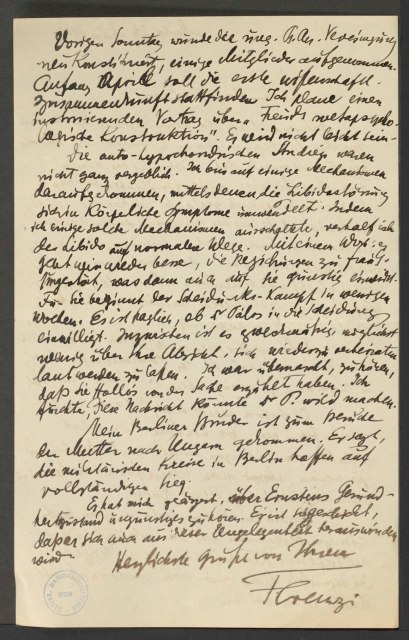 Vorigen Sonntag wurde die ung. Ps.An. Vereinigung
neu konstituiert, einige Mitglieder aufgenommen.
Anfang April soll die erste wissenschaftl.
Zusammenkunft stattfinden. Ich plane einen
instruierenden Vortrag über „Freuds metapsycho-
logische Konstruktion". Es wird nicht leicht sein.
Die auto-hypochondrischen Studien waren
nicht ganz vergeblich. Ich bin auf einige Mechanismen
daraufgekommen, mittels denen die Libidostörung
sich in körperliche Symptome umwandelt. Indem
ich einige solche Mechanismen ausschaltete, verhalf ich
der Libido auf normalere Wege. Mit einem Wort: es
geht mir wieder besser, die Beziehungen zu Frau G.
ungestört, was dann auch auf sie günstig einwirkt.
Für sie beginnt der Scheidungs-Kampf in wenigen
Wochen. Es ist fraglich, ob Pálos in die Scheidung
einwilligt. Inzwischen ist es zweckmäßig, möglichst
wenig über ihre Absicht, sich wieder zu verheiraten
laut werden zu lassen. Ich war überrascht, zu hören,
daß die Hollós von der Sache erzählt haben. Ich
fürchte, diese Nachricht könnte P. wild machen.
Mein Berliner Bruder ist zum Besuche
der Mutter nach Ungarn gekommen. Er sagt,
die militärischen Kreise in Berlin hoffen auf
vollständigen Sieg.
Es hat mich geärgert, über Ernsteins Gesund-
heitszustand ungünstiges zu hören. Es ist
daß er sich auch aus dieser Angelegenheit herauswinden
wird.
Herzlichste Grüße von Ihrem
Ferenczi
WIEN